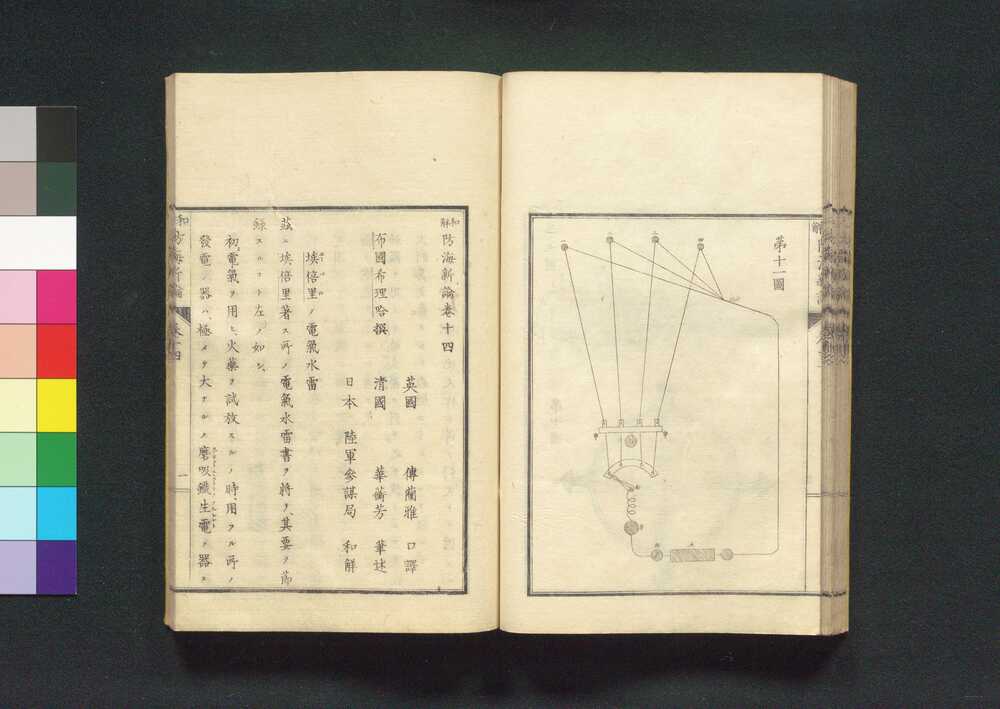 第十一圖
和解防海新論卷十四
布國希理哈撰
英國 傅蘭雅 口譯
清國 華蘅芳 筆述
日本 陸軍參謀局 和解
埃倍里ノ電氣水雷
茲ニ埃倍里著ス所ノ電氣水雷書ヲ將テ其要ヲ節
錄スルコト左ノ如シ、
初電氣ヲ用ヒ、火藥ヲ試放スルノ時、用フル所ノ
發電ノ器ハ、極メテ大ナルノ磨吸鐵生電ノ器ニ
和解防海新論 卷十四
一